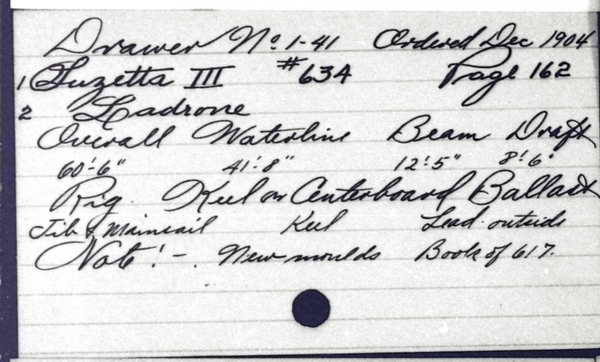 Drawer No. 1-41 Ordered Dec 1904
1 Suzetta III #634 Page 162
2 Ladrone
Overall Waterline Beam Draft
60'-6" 41'-8" 12'-5" 8'-6"
Rig. Keel or Centerboard Ballast
Jib & Mainsail Keel Lead outside
Note! - New moulds Book of 617.